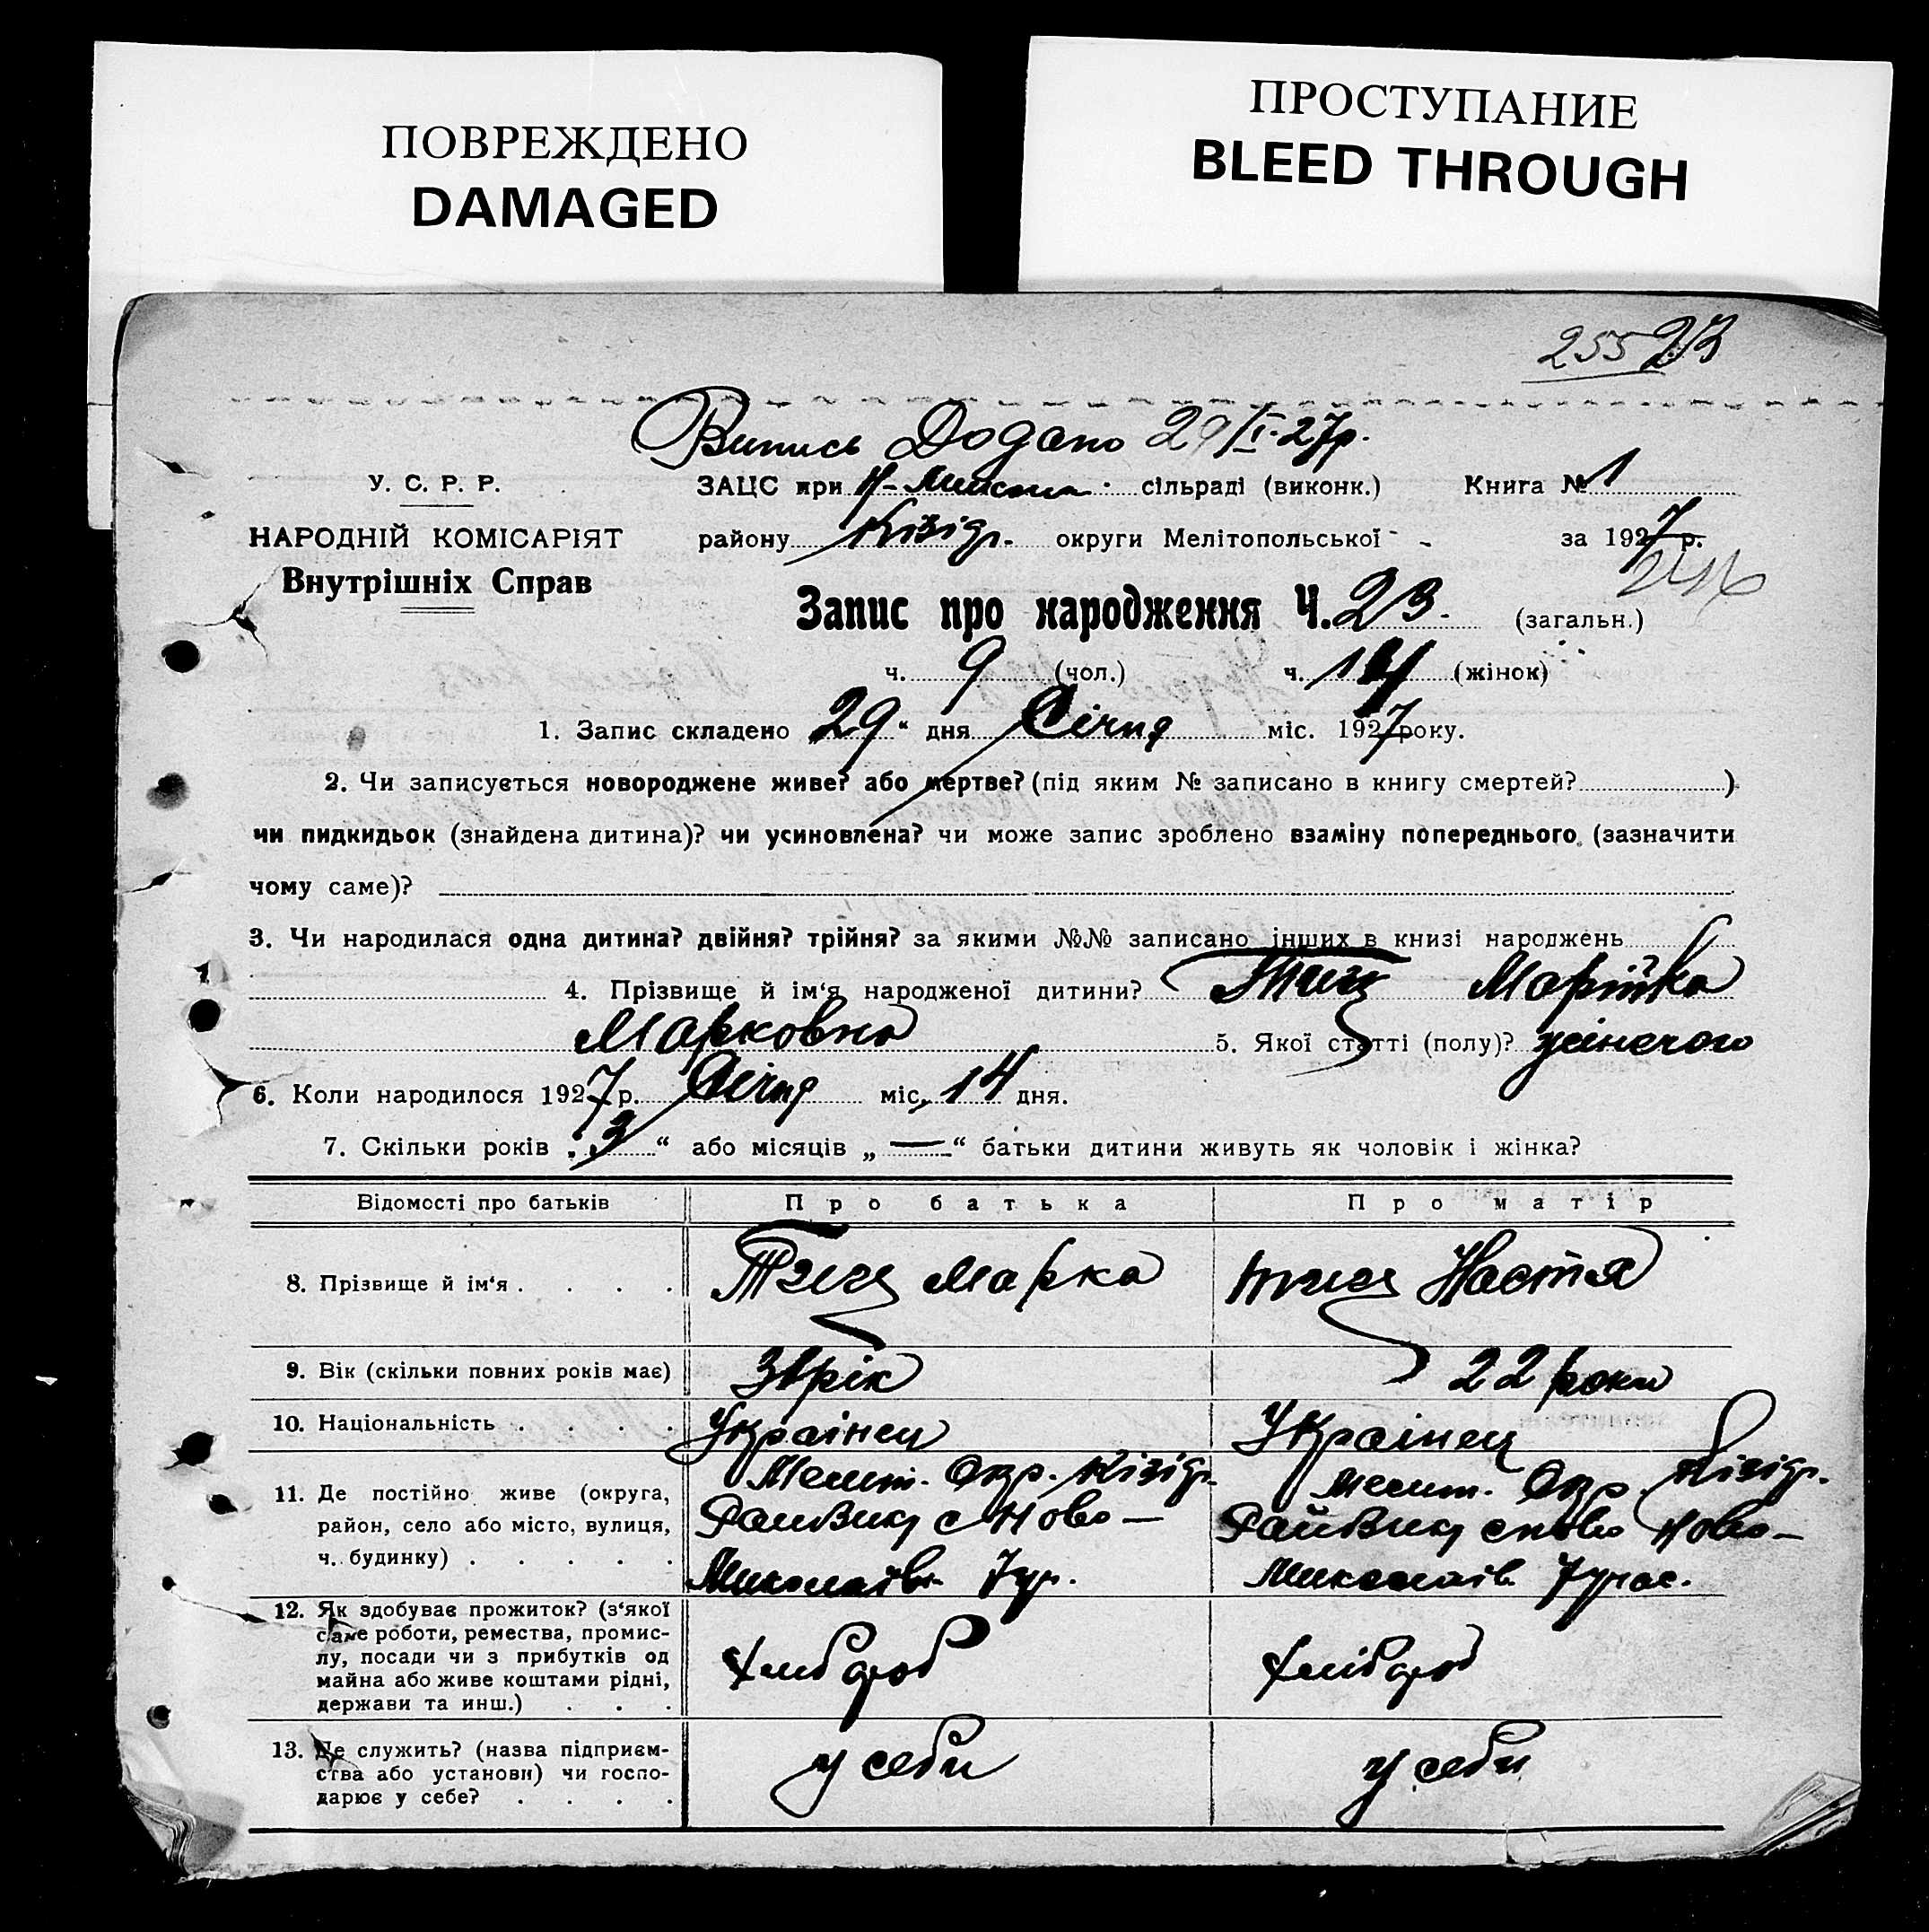 ПОВРЕЖДЕНО
DAMAGED
ПРОСТУПАНИЕ
BLEED THROUGH
255
Випись Додано 29/I-27р.
У. С. Р. Р.
ЗАЦС при сільраді (виконк.) Книга № 1
НАРОДНІЙ КОМІСАРІЯТ
району Кізіяр. округи Мелітопольської за 1927 р.
Внутрішніх Справ
246
Запис про народження Ч. 23. (загальн.)
ч. 9 (чол.) ч. 14 (жінок)
1. Запис складено „29“ дня Січня міс. 1927 року.
2. Чи записується новороджене живе? або мертве? (під яким № записано в книгу смертей? )
чи пидкидьок (знайдена дитина)? чи усиновлена? чи може запис зроблено взаміну попереднього. (зазначити
чому саме)?
3. Чи народилася одна дитина? двійня? трійня? за якими №№ записано інших в книзі народжень
4. Прізвище й ім‘я народженої дитини? Марійка
Марковна 5. Якої статті (полу)? жіночого
6. Коли народилося 1927 р. Січня міс. 14 дня.
7. Скільки років „3“ або місяців „—“ батьки дитини живуть як чоловік і жінка?
Відомості про батьків Про батька Про матір
8. Прізвище й ім‘я . . . . Марко Настя
9. Вік (скільки повних років має) рік 22 роки
10. Національність . . . . Українец Українец
Мелит. Окр. Кізіяр. Мелит. Окр. Кізіяр.
11. Де постійно живе (округа,
район, село або місто, вулиця, Райвику с Ново— Райвику Ново—
ч. будинку) . . . . . Миколаївк Миколаїв
12. Як здобуває прожиток? (з‘якої
саме роботи, ремества, промис-
лу, посади чи з прибутків од Хлибороб Хлібороб
майна або живе коштами рідні,
держави та инш.) . . .
13. Де служить? (назва підприєм- у себи у себи
ства або установи) чи госпо-
дарює у себе? . . . .